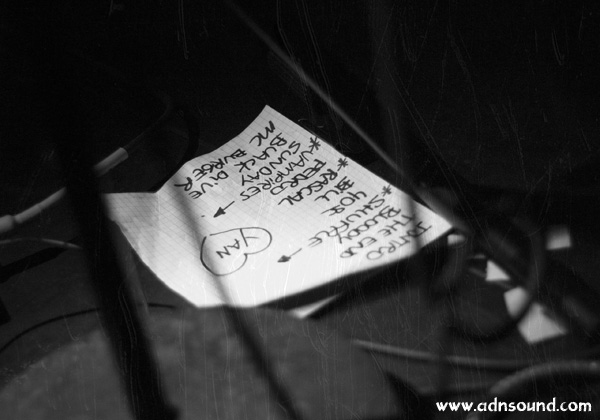 INTRO
THE END
BLOODY
* SHUFFLE
BILL
* RASCAL
PEDRO
* VAMPIRES
SUNDAY
BLACK DIVE
MC BURGER
YAN
www.adnsound.com